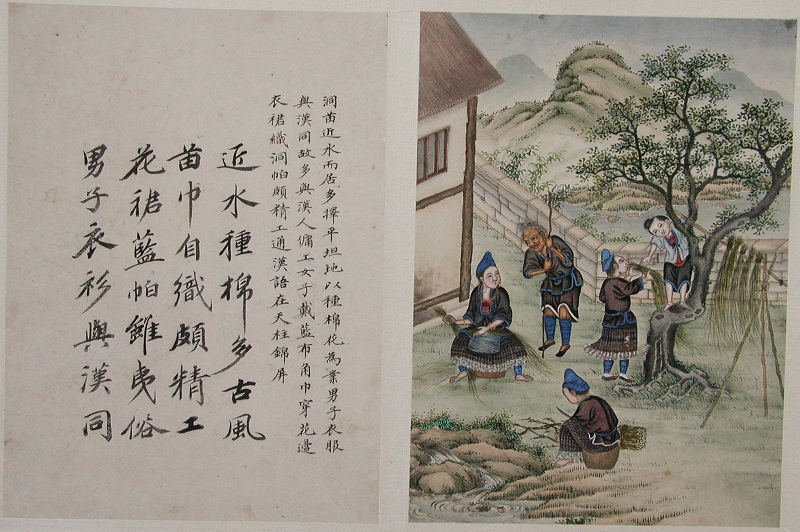 洞苗近水而居多擇平坦地以種棉花為業男子衣服
與漢同故多與漢人傭工女子戴藍布角巾穿花邊
衣裙織洞帕頗精工通漢語在天柱錦屏
近水種棉多古風
苗巾自織頗精工
花裙藍帕雖夷俗
男子衣衫與漢同